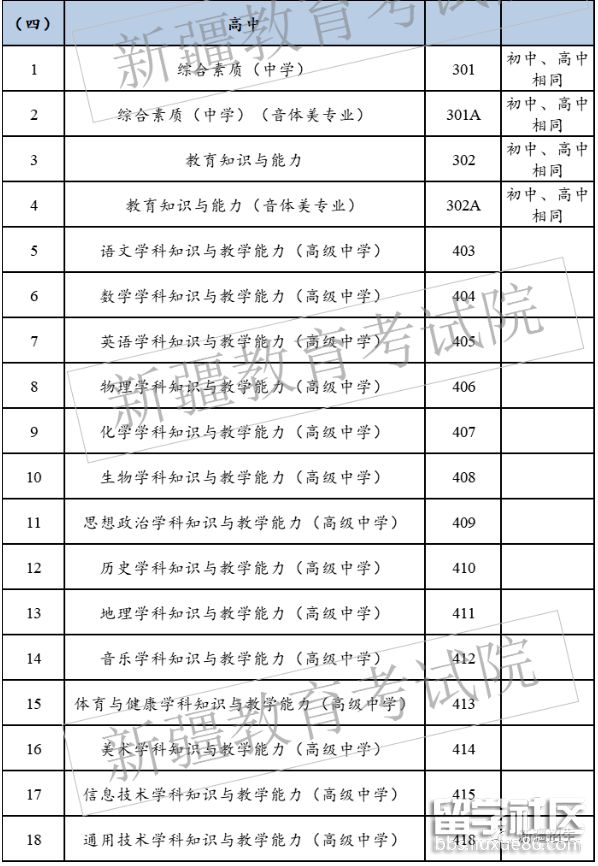 （四） 高中
1 综合素质（中学） 301 初中、高中相同
2 综合素质（中学）（音体美专业） 301A 初中、高中相同
3 教育知识与能力 302 初中、高中相同
4 教育知识与能力（音体美专业） 302A 初中、高中相同
5 语文学科知识与教学能力（高级中学） 403
6 数学学科知识与教学能力（高级中学） 404
7 英语学科知识与教学能力（高级中学） 405
8 物理学科知识与教学能力（高级中学） 406
9 化学学科知识与教学能力（高级中学） 407
10 生物学科知识与教学能力（高级中学） 408
11 思想政治学科知识与教学能力（高级中学） 409
12 历史学科知识与教学能力（高级中学） 410
13 地理学科知识与教学能力（高级中学） 411
14 音乐学科知识与教学能力（高级中学） 412
15 体育与健康学科知识与教学能力（高级中学） 413
16 美术学科知识与教学能力（高级中学） 414
17 信息技术学科知识与教学能力（高级中学） 415
18 通用技术学科知识与教学能力（高级中学） 418
新疆教育考试院
新疆教育考试院
新疆教育考试院
留学社区
bbs.liuxue86.com